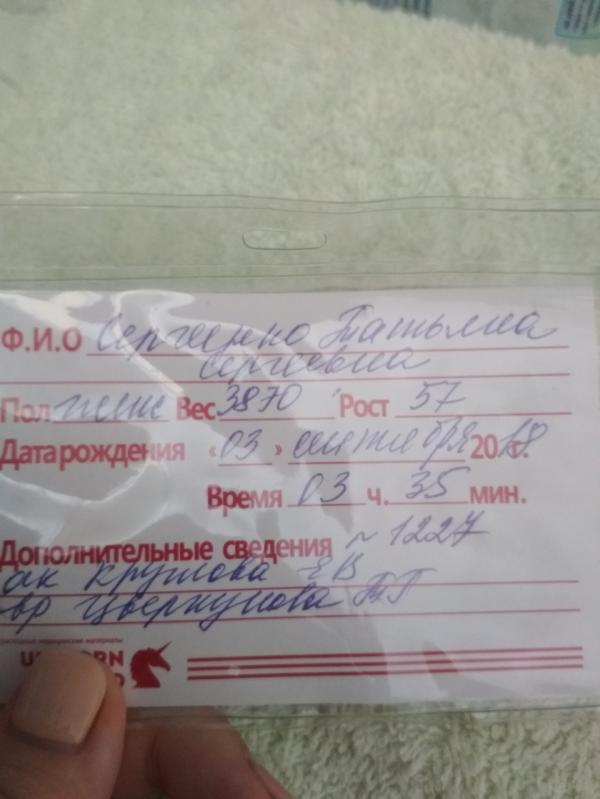 Ф.И.О Сергиенко Татьяна
Сергеевна
Пол жен Вес 3870 Рост 57
Дата рождения «03» сентября 2018г.
Время 03 ч. 35 мин.
Дополнительные сведения ~ 1227
ак Круглова ЕВ
вр Цверкунова ТП